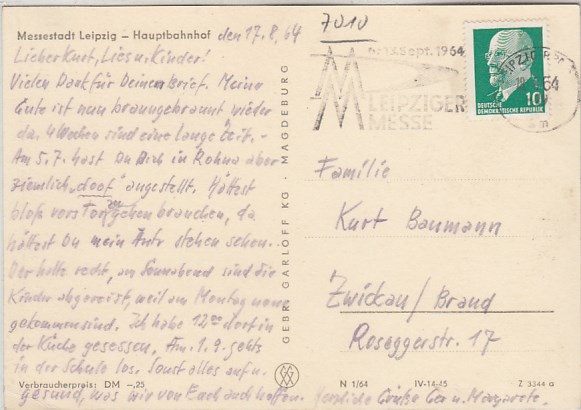 Messestadt Leipzig – Hauptbahnhof den 17.8.64
Lieber Kurt, Lies u. Kinder!
Vielen Dank für Deinen Brief. Meine
Gute ist nun braungebrannt wieder
da. 4 Wochen sind eine lange Zeit. –
Am 5.7. hast Du Dich in Rohna aber
ziemlich „doof" angestellt. Hättest
bloß vers brauchen, da
hättest Du mein Auto stehen sehen.
Der hatte recht, am Sonnabend sind die
Kinder abgereist, weil am Montag neue
gekommen sind. Ich habe 12⁰⁰ dort in
der Küche gesessen. Am 1.9. gehts
in der Schule los. Sonst alles auf u.
gesund, was wir von Euch auch hoffen. Herzliche Grüße Ger u. Margarete.
Verbraucherpreis: DM –,25
GEBR. GARLOFF KG · MAGDEBURG
7010
Sept. 1964
LEIPZIGER
MESSE
LEIPZIG
64
DEUTSCHE
DEMOKRATISCHE REPUBLIK
10
Familie
Kurt Baumann
Zwickau/Brand
Roseggerstr. 17
N 1/64 IV-14-45 Z 3344 a